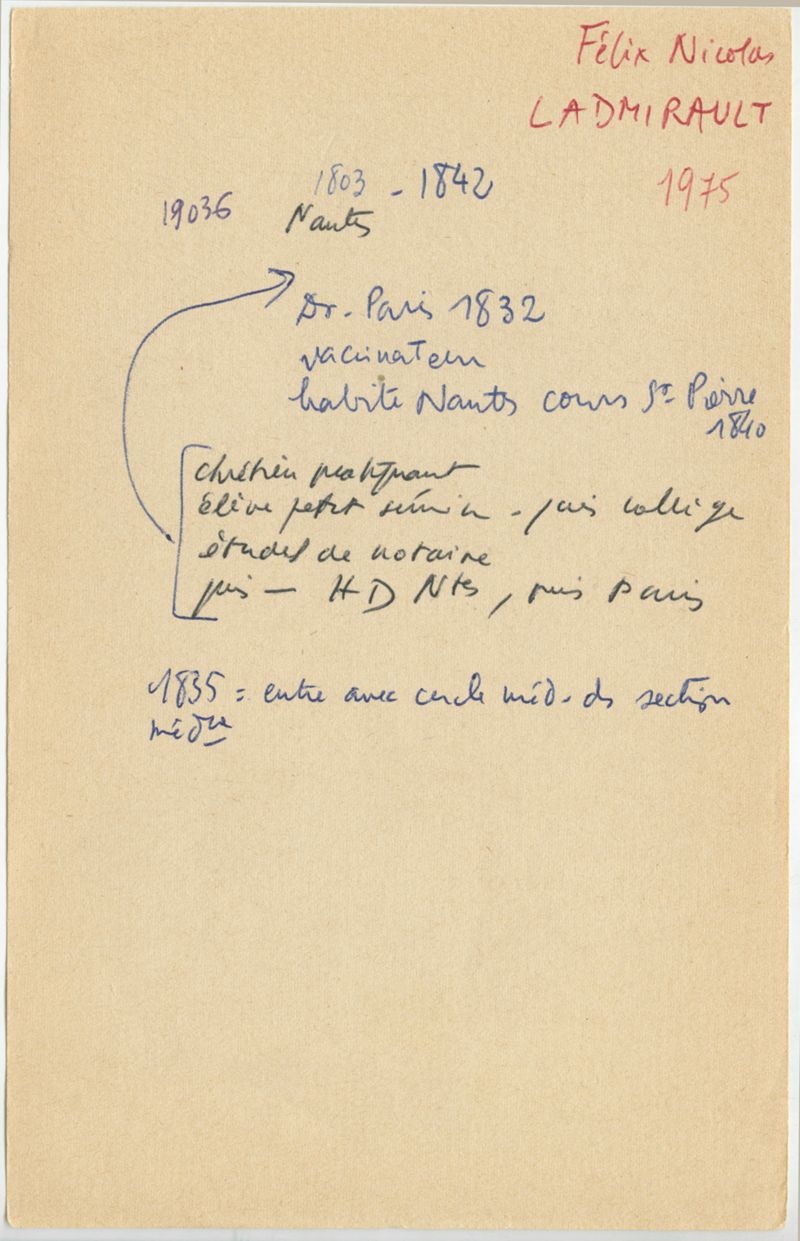 Félix Nicolas
LADMIRAULT
1975
19036
1803 - 1842
Nantes
Dr. Paris 1832
vaccinateur
habite Nantes cours St Pierre
1840
chrétien pratiquant
élève petit sémin - puis collège
études de notaire
puis — HD Ntes, puis Paris
1835 = entre avec cercle méd. ds section
médle